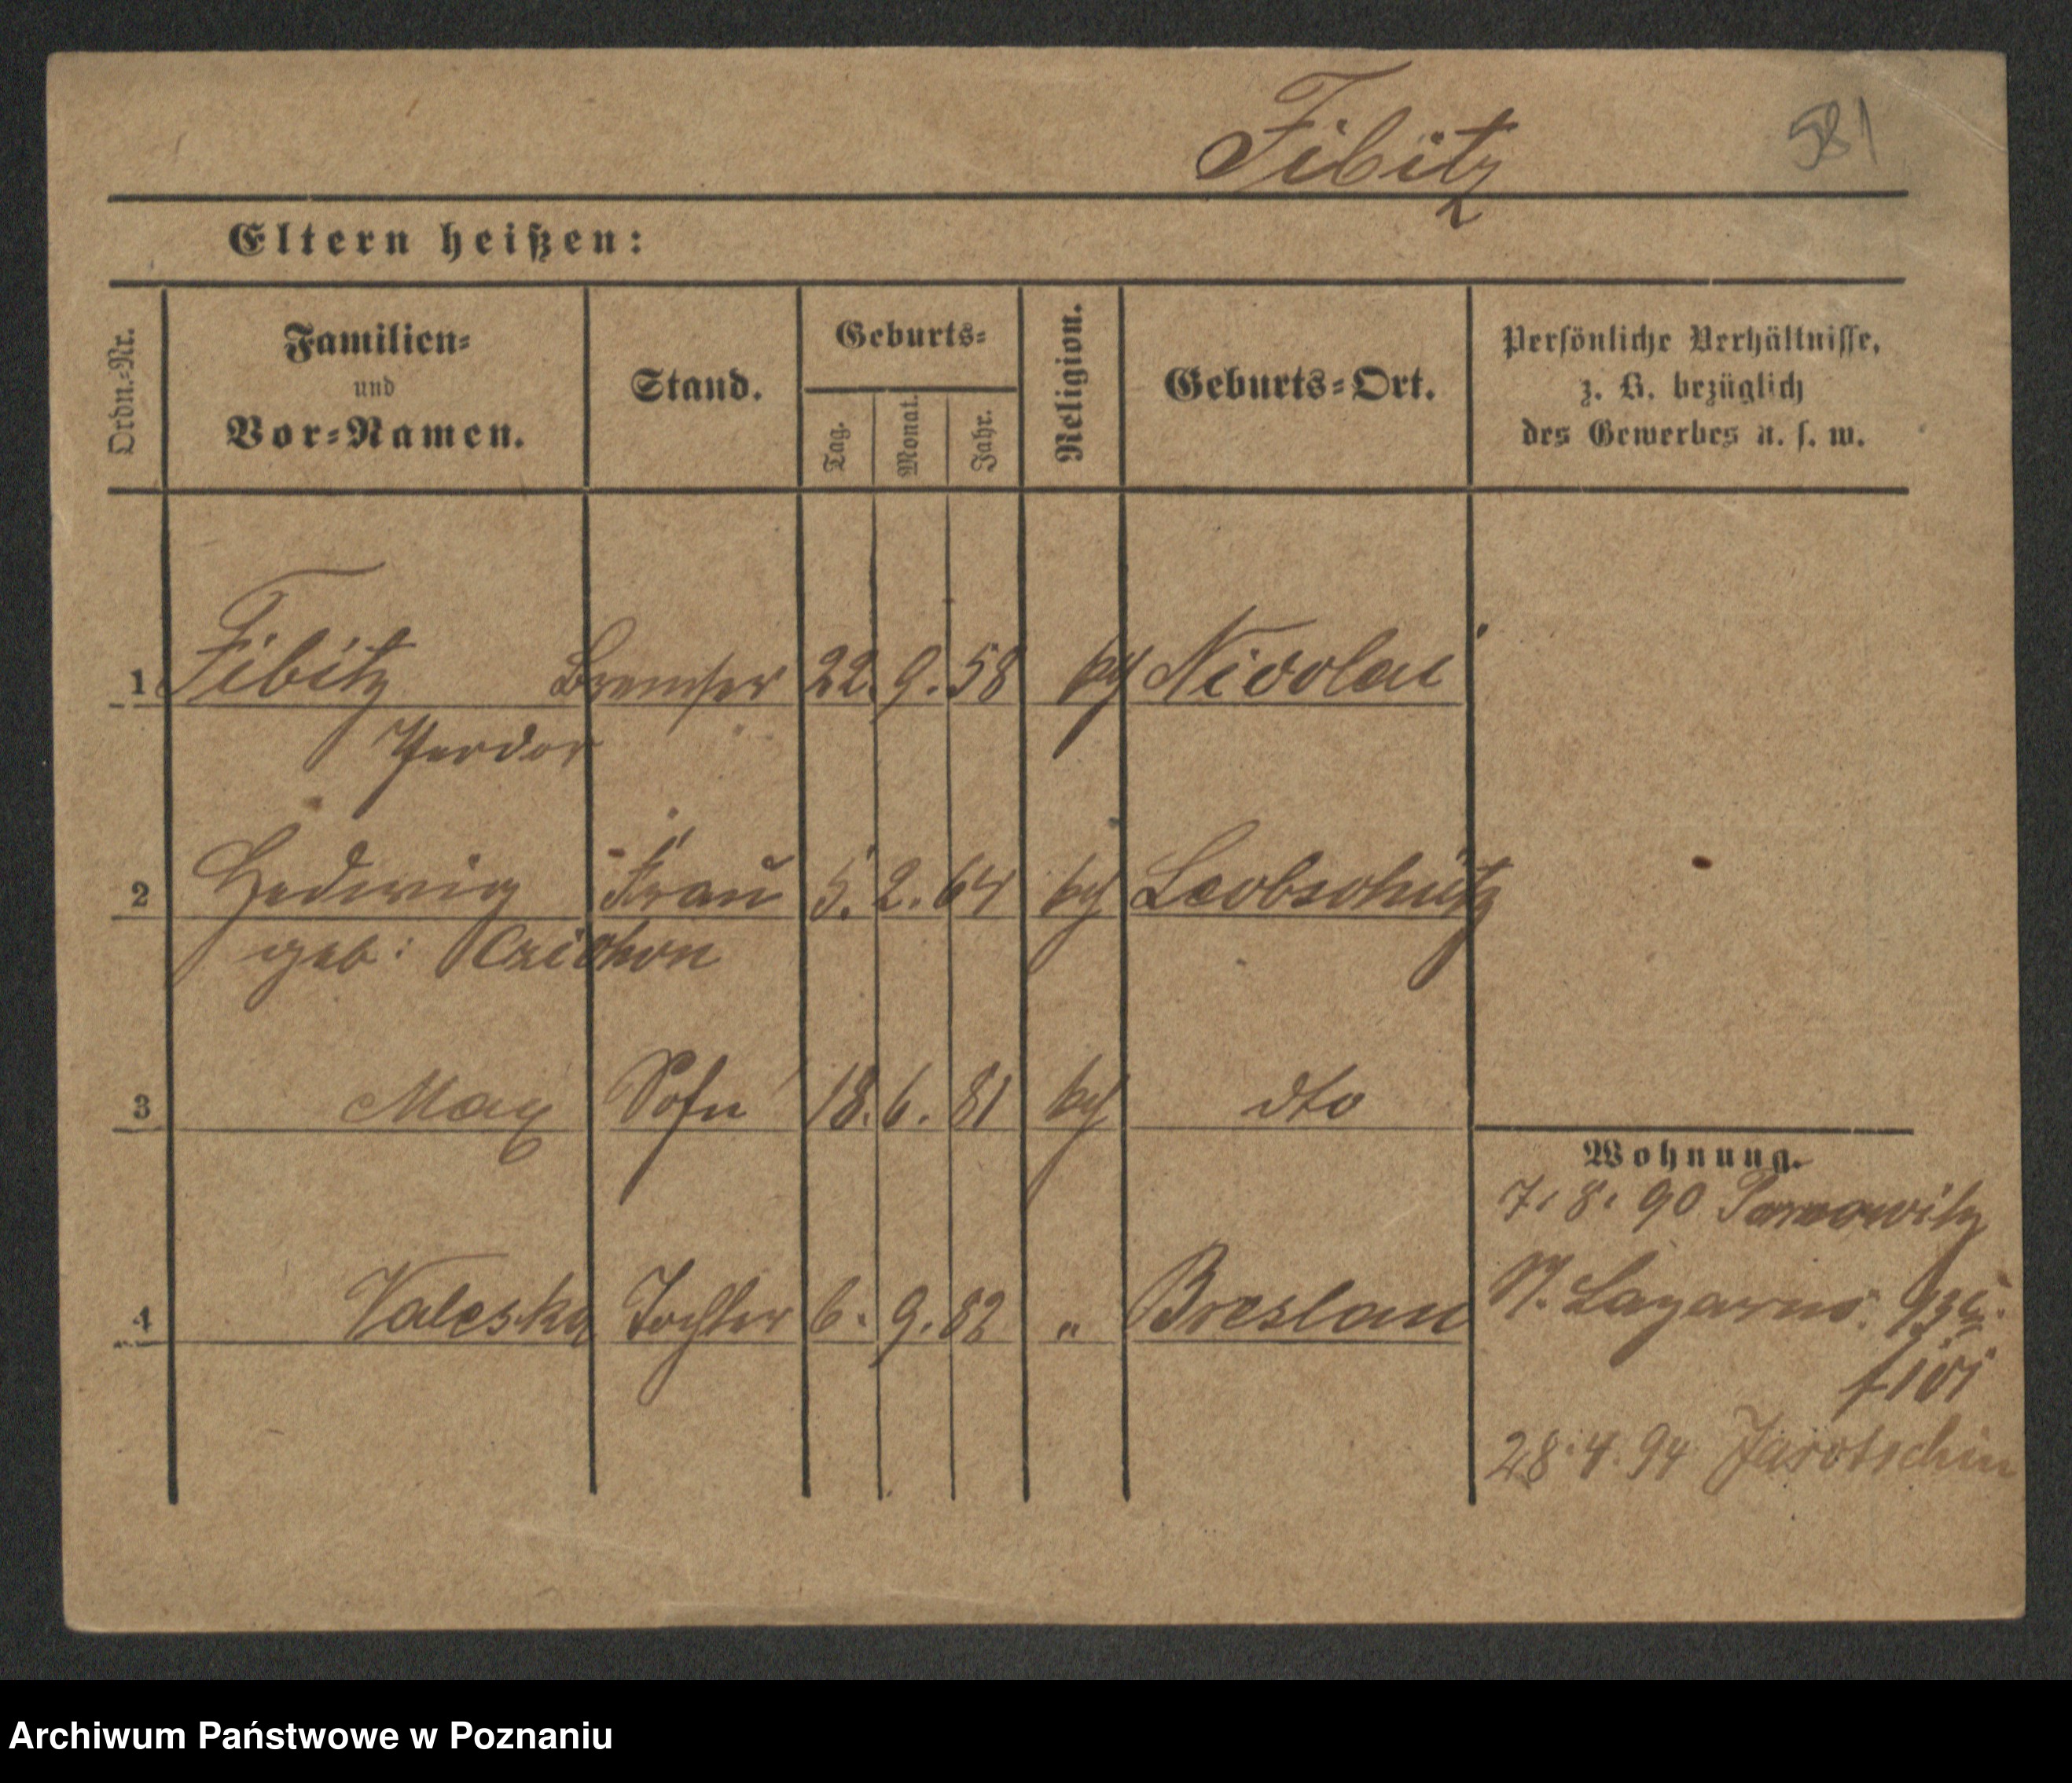 Fibitz 581
Eltern heißen:
Ordn.-Nr. Familien- und Vor-Namen. Stand. Geburts- Tag. Monat. Jahr. Religion. Geburts-Ort. Persönliche Verhältnisse, z. B. bezüglich des Gewerbes u. s. w.
1 Fibitz Bremser 22. 9. 58 Nicolai
2 Hedwig Frau 5. 2. 64 Leobschütz
geb: Czichon
3 Max Sohn 18. 6. 81 dto
Wohnung.
7. 8. 90 Tarnowitz
4 Valeska Tochter 6. 9. 82 " Breslau
St. Lazarus.
28. 4. 94 Jarotschin
Archiwum Państwowe w Poznaniu